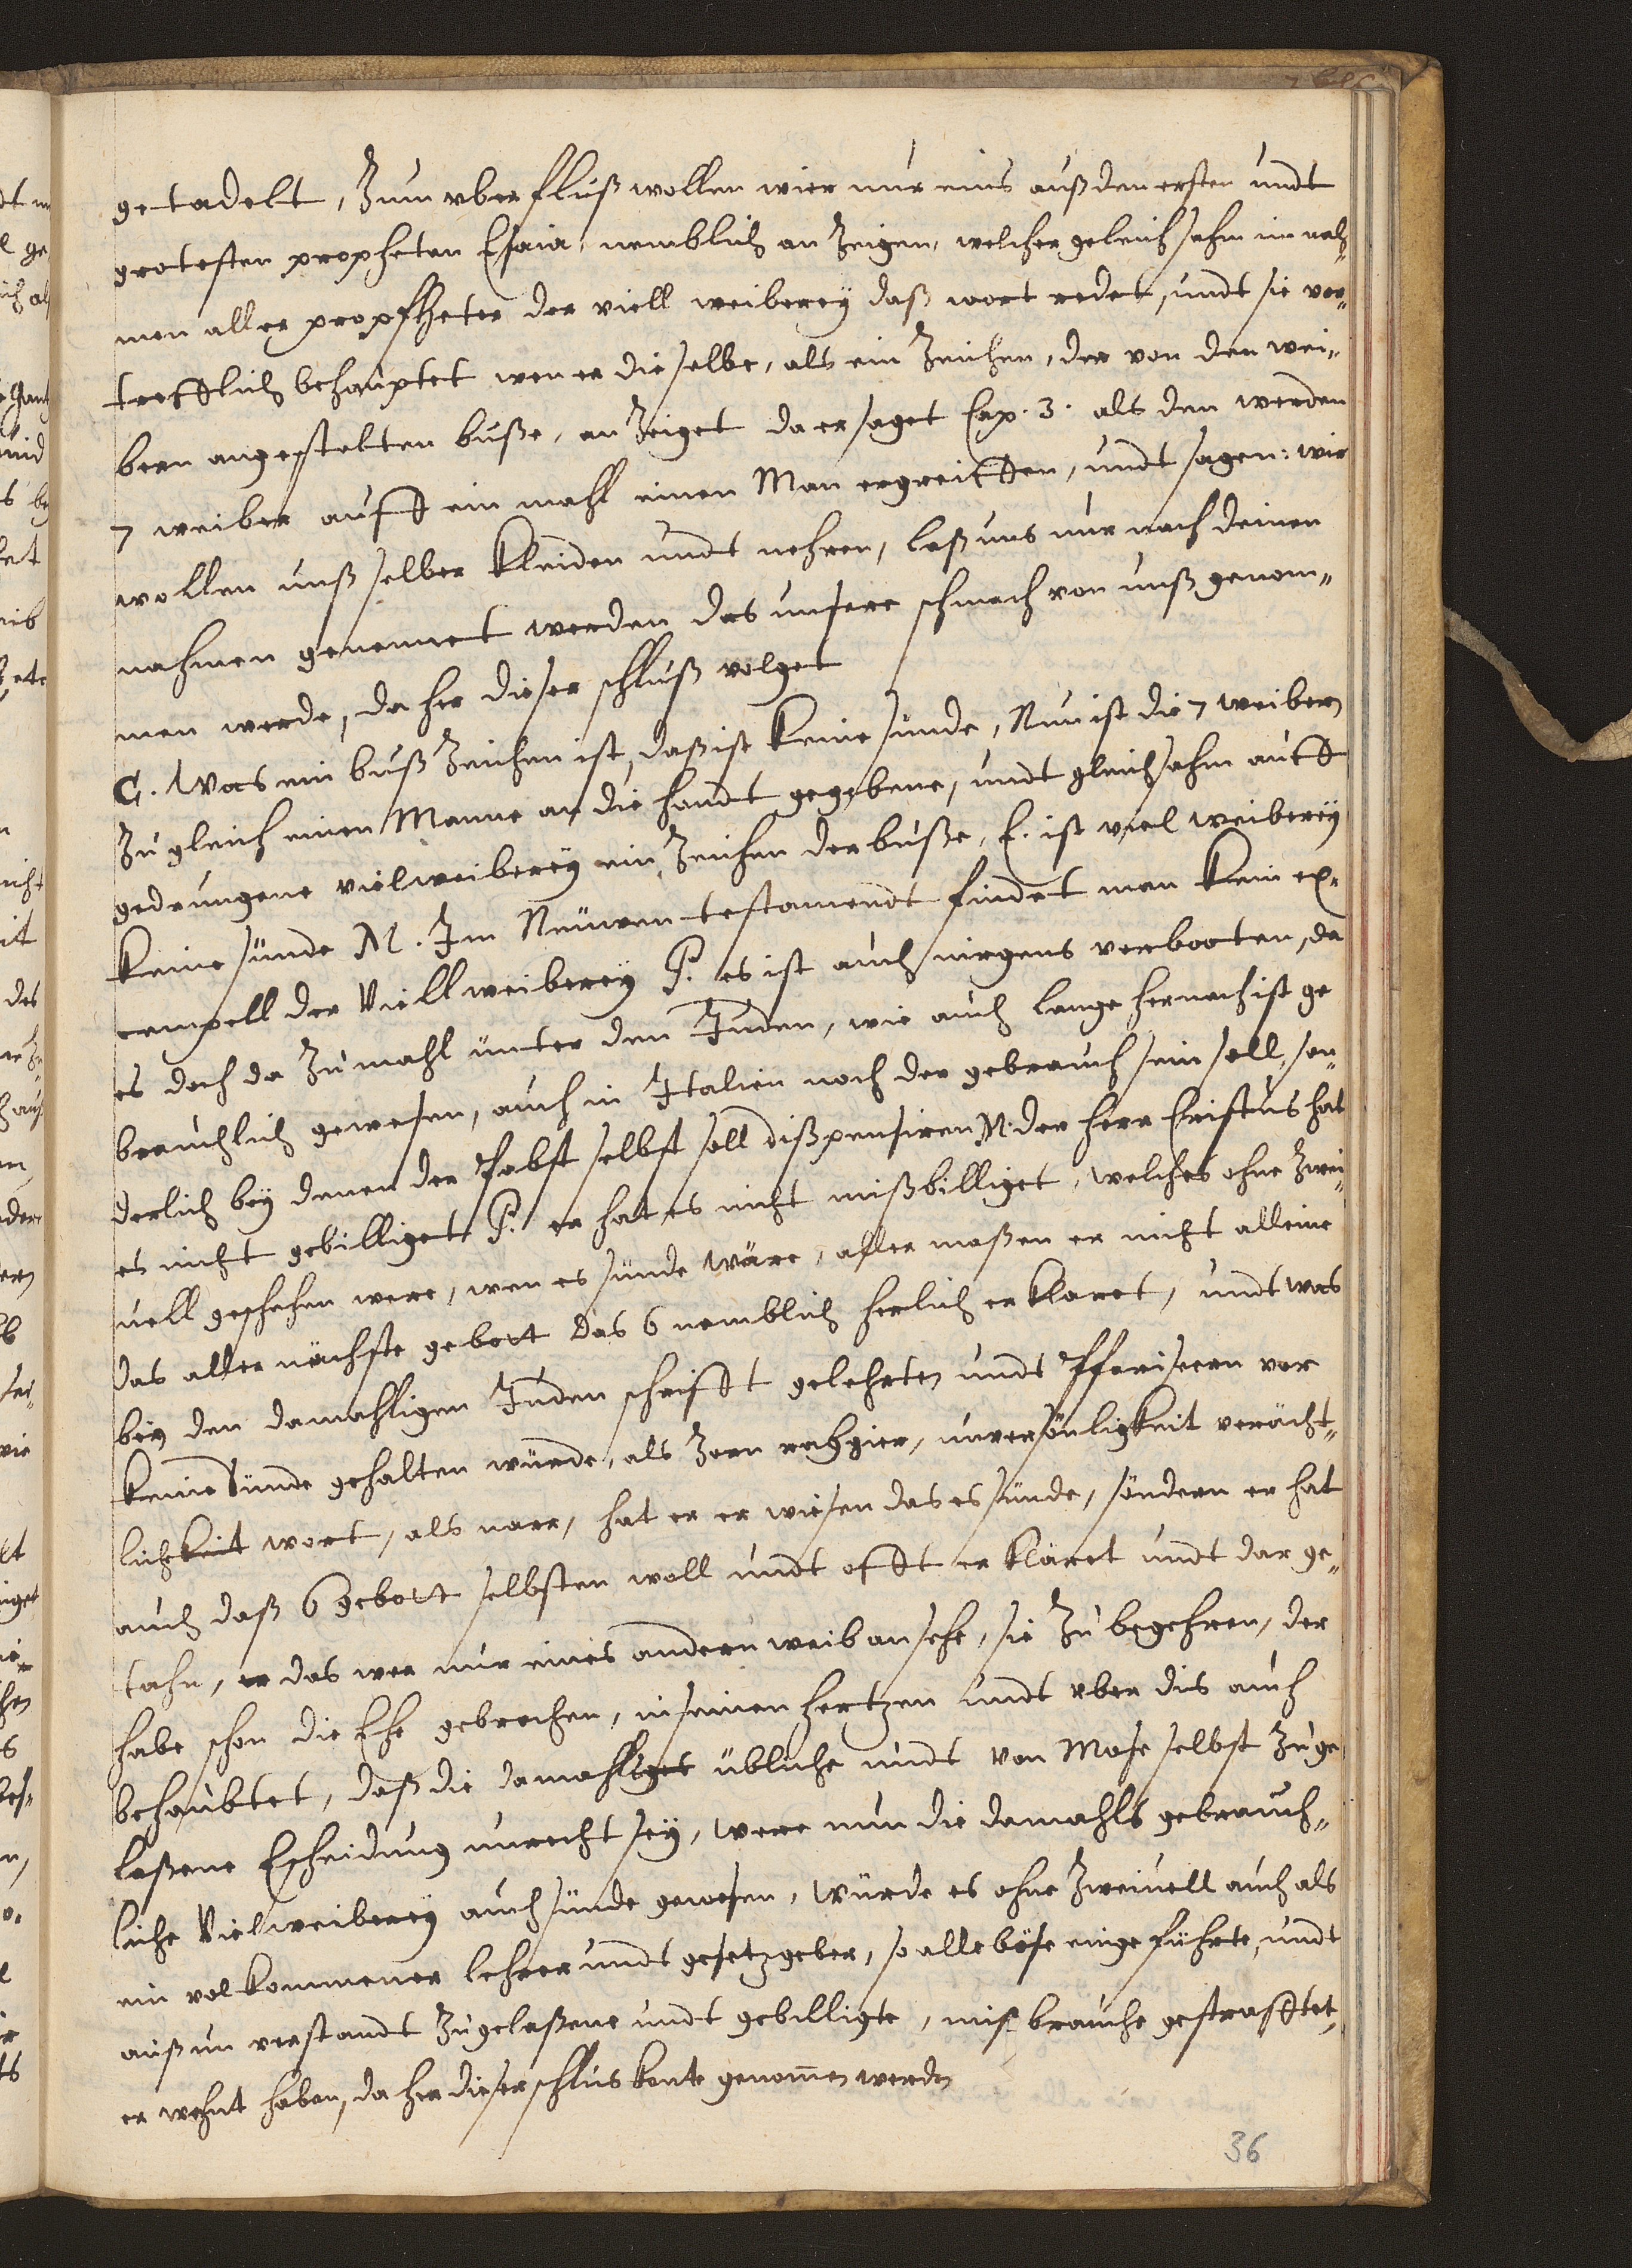 getadelt, Zum vberfluß wollen wier nur eins auß den ersten undt
grotesten propheten Esaia, nemblich an Zeigen, welcher gleich sahm im nah¬
men aller propfheter der viell weiberey daß wort redet, undt sie vor¬
trefflich behauptet wen er die selbe, als ein Zeichen, der von den wei¬
bern angestelten buße, an Zeiget da er saget Cap. 3. als den werden
7 weiber auff ein mahl einen Man ergreiffen, undt sagen: wir
wollen unß selber kleiden undt nehren, laß uns nur nach deinen
nahmen genennet werden das unsere schmach von unß genom¬
men werde, da her dieser schluß volget
C. Was ein buß Zeichen ist, daß ist keine sünde, Nun ist die 7 weibern
Zu gleich einen Manne an die handt gegebene, undt gleichsahm auff
gedrungene vielweiberey ein Zeichen der buße, E. ist viel weiberey
keine sünde M. Im Neuwen testamendt findet man kein ex¬
empell der Viell weiberey P. es ist auch nirgens verbooten, da
es doch da Zumahl unter den Juden, wie auch lange hernach ist ge
brauchlich gewesen, auch in Italien noch der gebrauch sein soll, son¬
derlich bey denen der Pabst selbst soll dißpensiren M. der Herr Cristus hat
es nicht gebilliget P. er hat es nicht mißbilliget, welches ohne Zwei¬
uell geschehen were, wen es sünde wäre, aller maßen er nicht alleine
das aller nächste gebott das 6 nemblich herlich er klaret, undt was
bey den damahligen Juden schrifft gelehrten undt Pfariseern vor
keine Sünde gehalten würde, als Zorn rahgier, unversönligkeit verächt¬
lichkeit wort, als narr, hat er er wiesen das es sünde, söndern er hat
auch daß 6 gebott selbsten woll undt offt er kläret undt dar ge¬
tahn, er das wer nur eines andern weib ansehe, sie Zu begehren, der
habe schon die Ehe gebrochen, in seinen hertzen undt vber dis auch
behaubtet, daß die damahliges übliche undt von Mose selbst Zu ge
laßene Escheidung unrecht sey, were nun die damahls gebrauch¬
liche Vielweiberey auch sünde gewesen, würde es ohne Zweiuell auch als
ein volkommener lehrer undt gesetzgeber, so alle böse einge führte, undt
auß un verstandt Zugelaßene undt gebilligte, misbrauche gestraffet,
er wehnt haben, da her dieser schlus konte genommen werden
36